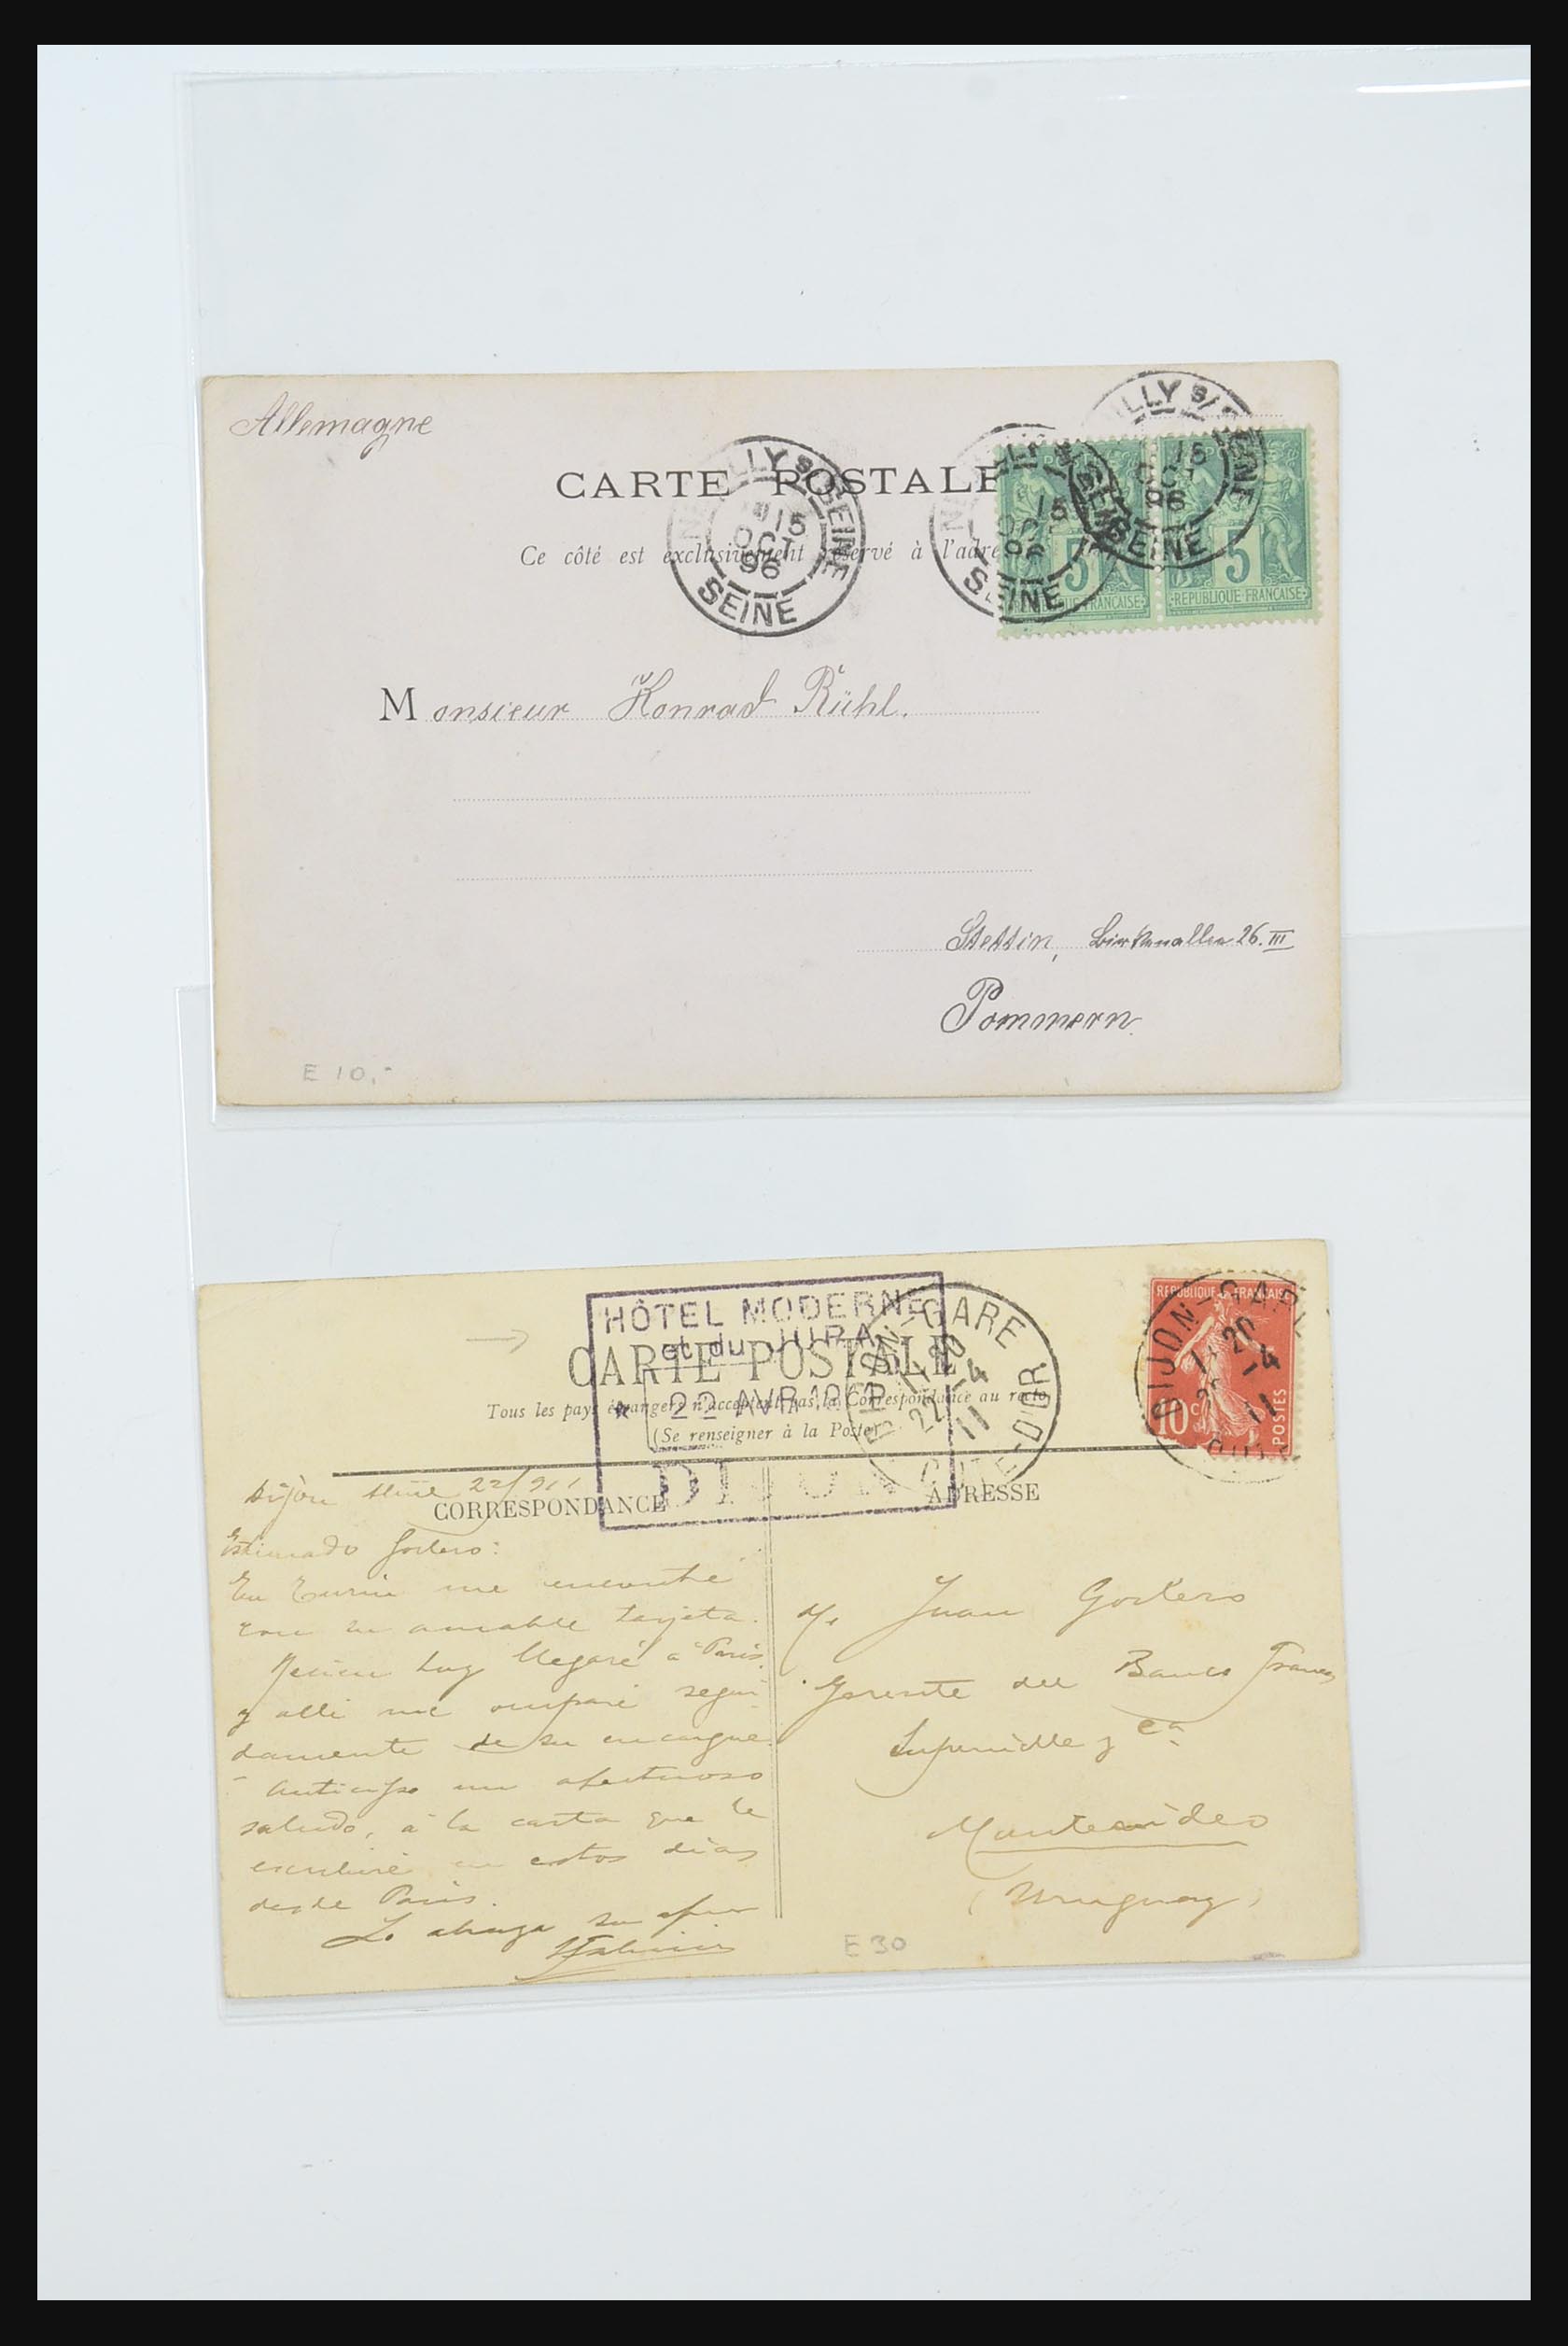 Allemagne
CARTE POSTALE
Ce côté est exclusivement réservé à l'adre
LLY S/ SEINE
15
OCT
96
SEINE
15
96
SEINE
LLY S/ SEINE
15
OCT
96
SEINE
5
5
REPUBLIQUE FRANÇAISE
Monsieur Konrad Rühl.
Stettin, Birkenallee 26. III
Pommern
E 10,-
HÔTEL MODERNE
et du JURA
★ 22 AVR 191
DIJON
CARTE POSTALE
Tous les pays étrangers n'acceptent pas la Correspondance au recto
(Se renseigner à la Poste)
DIJON-GARE
20
22-4
11
CÔTE-D'OR
REPUBLIQUE FRANÇAISE
10c
POSTES
DIJON-GARE
20
-4
11
CORRESPONDANCE
ADRESSE
Dijon Abril 22/911
Estimado Gorlero:
En Turin me encontré
con su amable tarjeta.
llegaré a Paris
y alli me ocuparé segui
damente de su encargue.
Anticipo un afectuoso
saludo, á la carta que le
escribiré en estos dias
desde Paris.
Lo abraza su afmo
Juan Gorlero
Gerente del Banco Frances
Supervielle y Ca
Montevideo
(Uruguay)
E 30